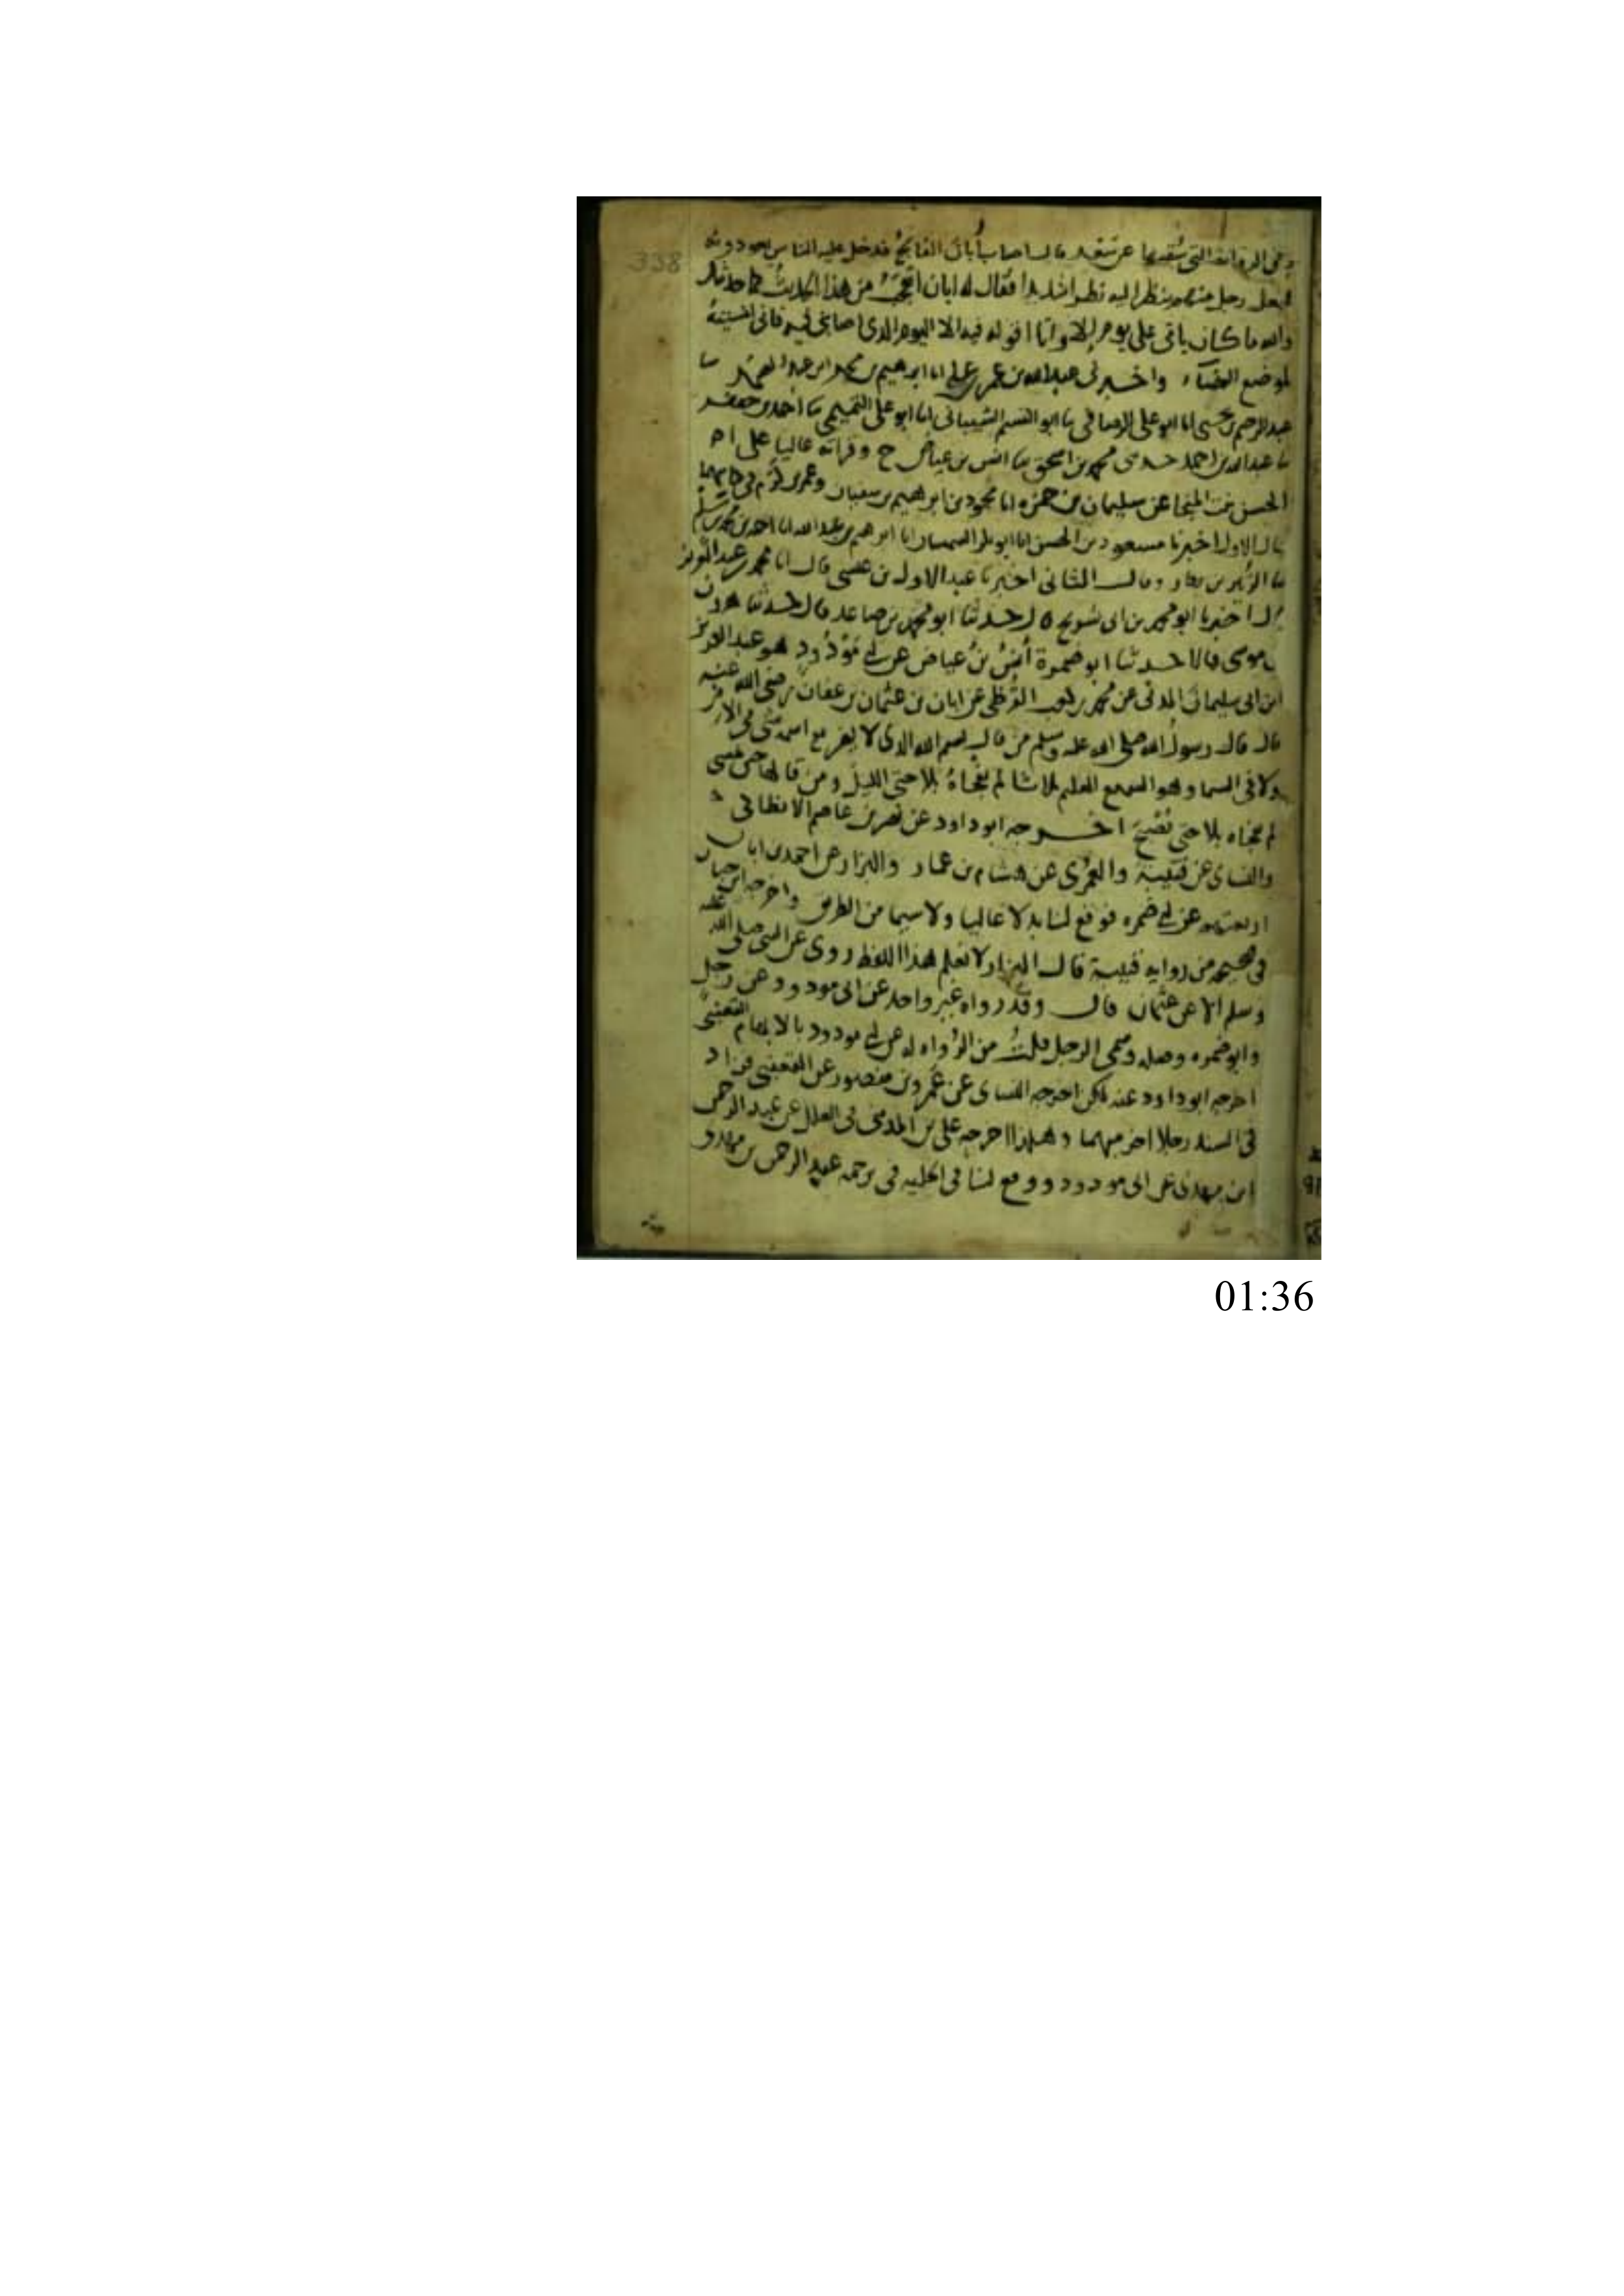 338
وفي الرواية التي سقتها عن سعيد قال اصاب أبان الفالج فدخل عليه الناس يعودونه
فجعل رجل منهم ينظر اليه نظرا شديدا فقال له ابان اتعجب من هذا الحديث كما حدثتك
والله ما كان ياتي علي يوم إلا وانا اقوله فيه الا اليوم الذي اصابني فيه فاني انسيته
لموضع القضاء واخبرني عبدالله بن عمر بن علي انا ابراهيم بن محمد ابن عبد الصمد نا
عبدالرحيم بن يحيى انا ابو علي الرصافي نا ابو القسم الشيباني انا ابو علي التميمي نا احمد بن جعفر
نا عبدالله بن احمد حدثني محمد بن اسحق نا انس بن عياض ح وقراته عاليا على ام
الحسن بنت المنجا عن سليمان بن حمزه انا محمود بن ابرهيم بن سفيان وعمر بن كرم في كتابيهما
قال الاول اخبرنا مسعود بن الحسن انا ابو بكر السمسار انا ابرهيم بن عبدالله انا احمد بن محمد بن سلم
نا الزبير بن بكار وقال الثاني اخبرنا عبد الاول بن عيسى قال انا محمد بن عبد العزيز
قال اخبرنا ابو محمد بن ابي شريح قال حدثنا ابو محمد بن صاعد قال حدثنا هرون
بن موسى قالا حدثنا ابو ضمرة أنس بن عياض عن ابي مودود هو عبد العزيز
ابن ابي سليمان المدني عن محمد بن كعب القرظي عن ابان بن عثمان بن عفان رضي الله عنه
قال قال رسول الله صلى الله عليه وسلم من قال بسم الله الذي لا يضر مع اسمه شي في الارض
ولا في السما وهو السميع العليم ثلاثا لم يفجاه بلا حتى الليل ومن قالها حين يمسي
لم يفجاه بلا حتى يصبح اخرجه ابو داود عن نصر بن عاصم الانطاكي
والنساي عن قتيبة والمعمري عن هشام بن عمار والبزار عن احمد بن ابان
اربعتهم عن ابي ضمره فوقع لنا بدلا عاليا ولا سيما من الطريق واخرجه ابن حبان
في صحيحه من رواية قتيبة قال البزار لا نعلم هذا اللفظ روي عن النبي صلى الله عليه
وسلم الا عن عثمان قال وقد رواه غير واحد عن ابي مودود عن رجل
وابو ضمره وصله وسمى الرجل قلت من الرواه له عن ابي مودود بالابهام القعنبي
اخرجه ابو داود عنه لكن اخرجه النساي عن عمرو بن منصور عن القعنبي فزاد
في السند رجلا اخر مبهما وهكذا اخرجه علي بن المديني في العلل عن عبد الرحمن
ابن مهدي عن ابي مودود ووقع لنا في الحليه في ترجمه عبد الرحمن بن مهدي
01:36